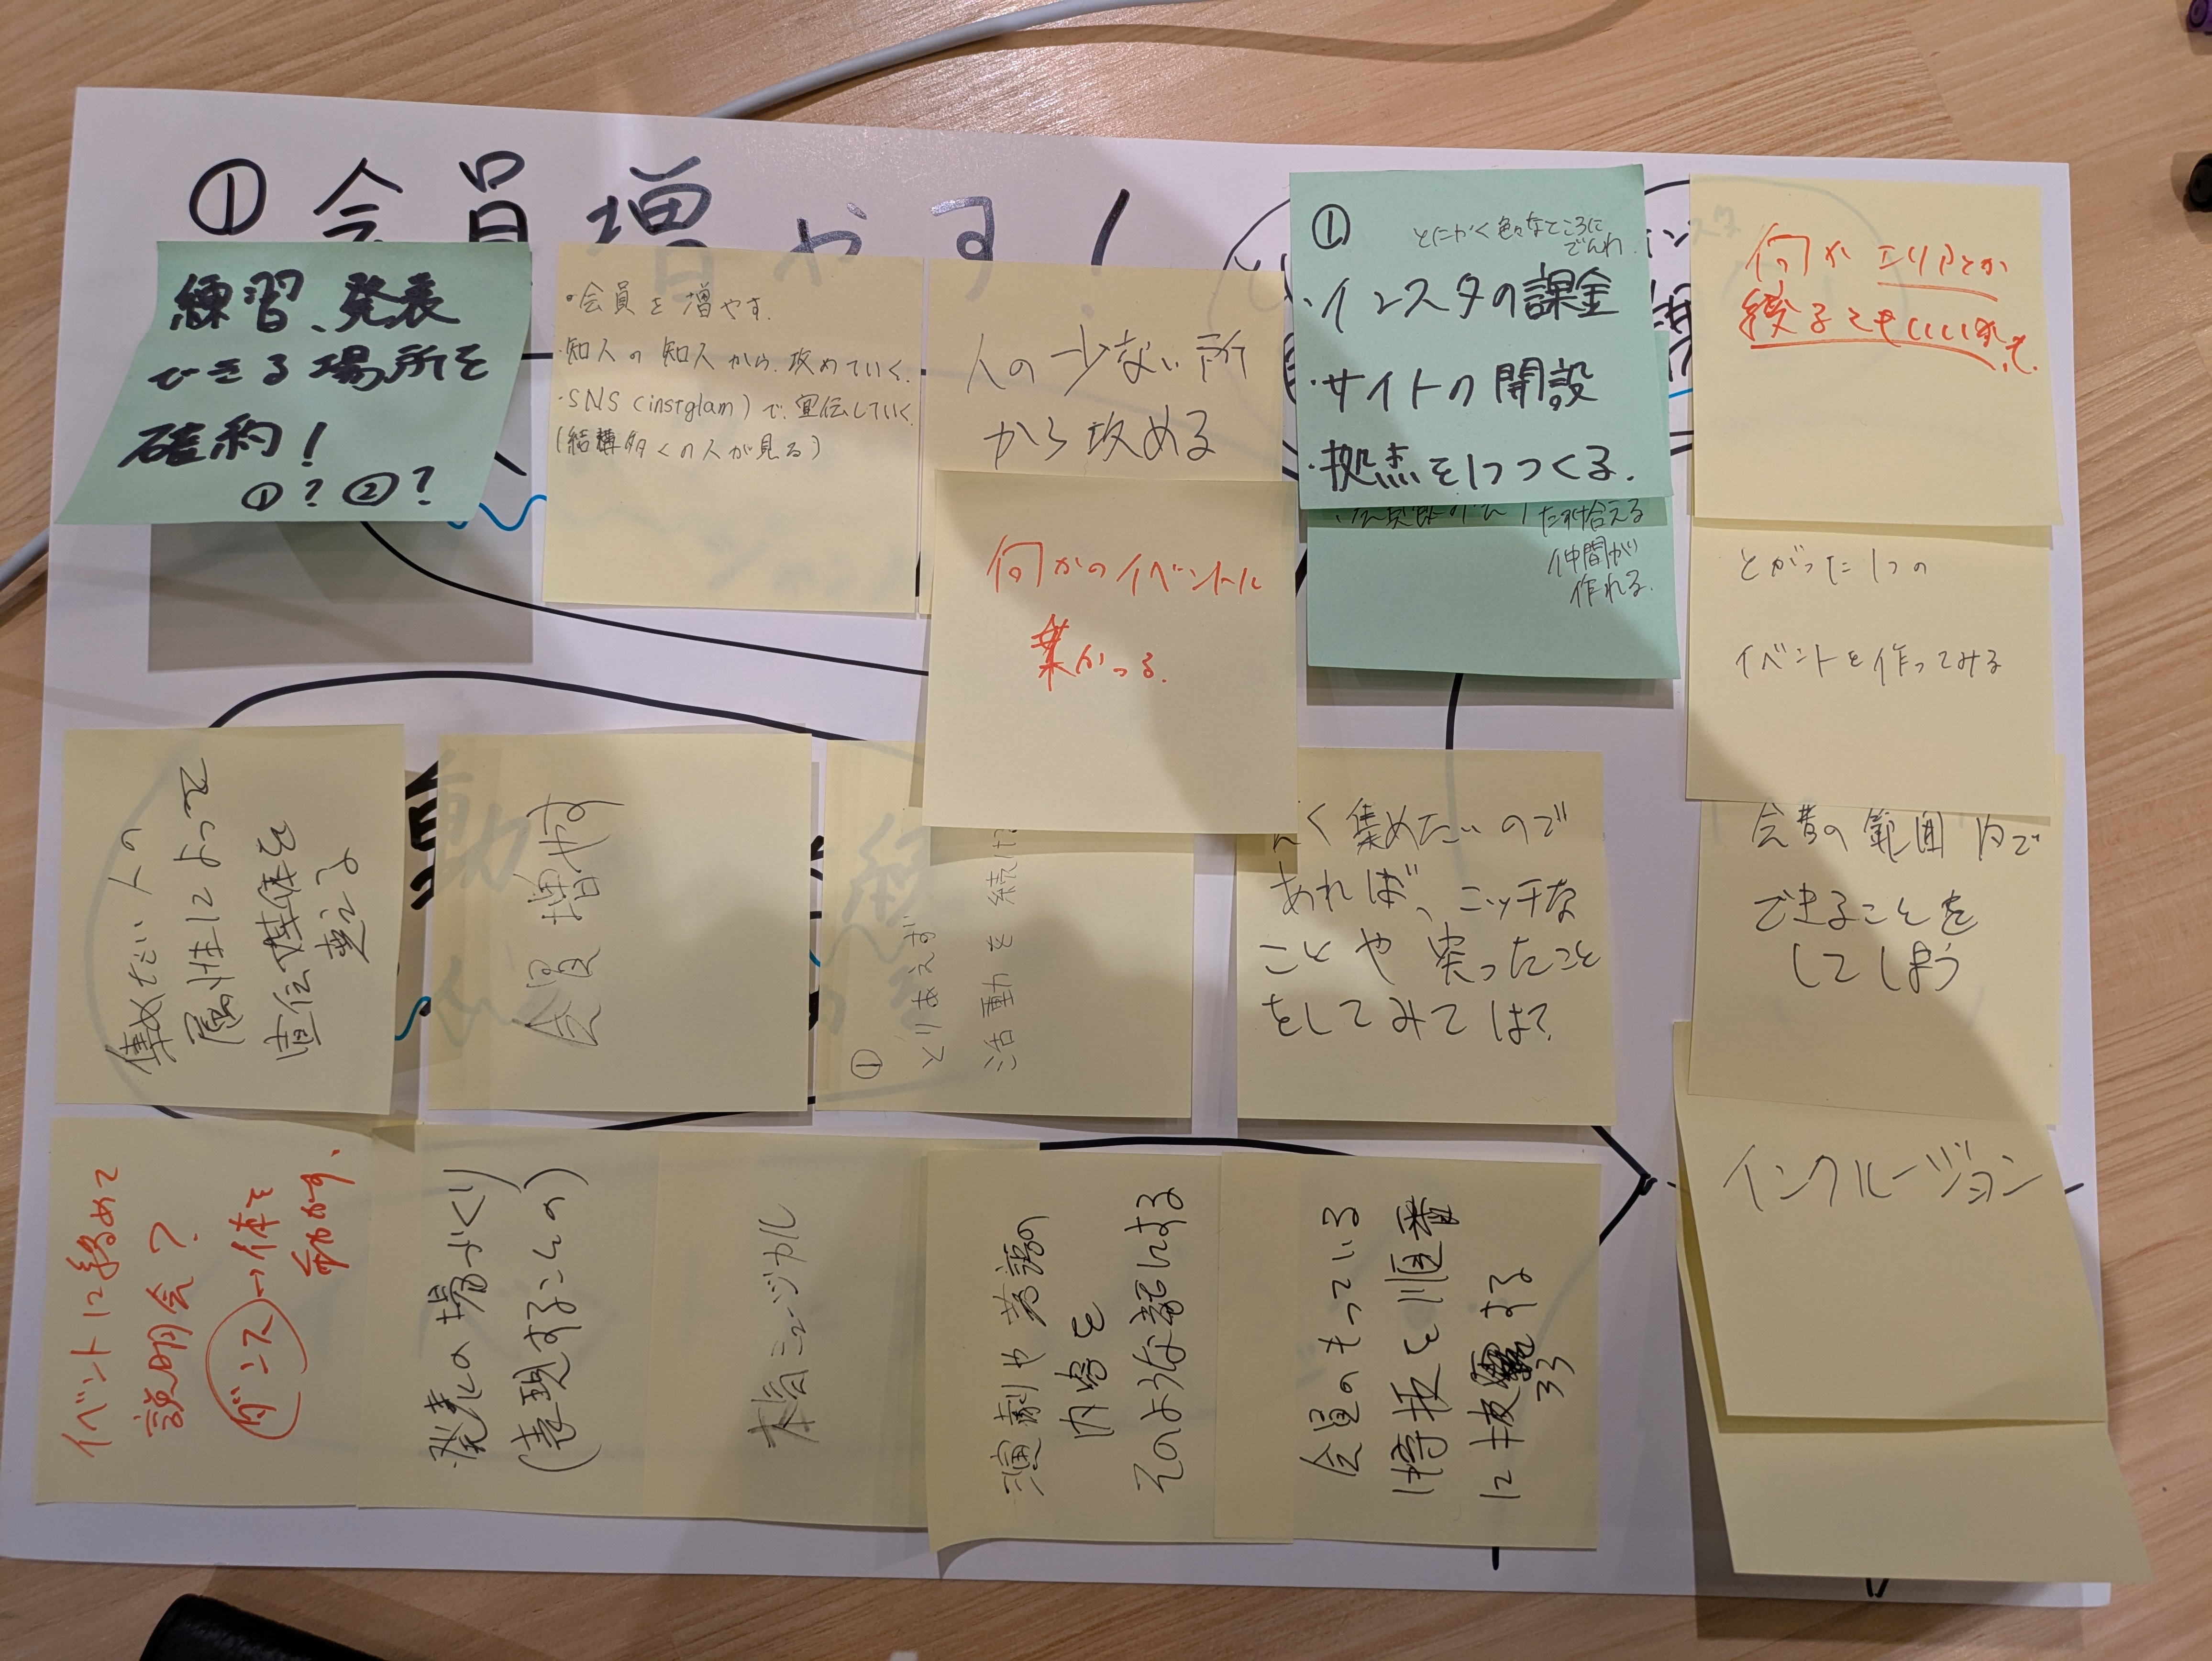 ①会員増やす!
練習、発表
できる場所を
確約!
①?②?
・会員を増やす.
・知人の知人から.攻めていく.
・SNS(instglam)で.宣伝していく.
(結構多くの人が見る)
人の少ない所
から攻める
何かのイベントに
乗かつる.
①
とにかく色々なところに
でんわ.
・インスタの課金
・サイトの開設
・拠点を1つつくる.
たすけ合える
仲間が
作れる.
何かエリアとか
絞ってもいいかも.
とがった1つの
イベントを作ってみる
会費の範囲内で
できることを
してしまう
インクルージョン
集めたい人の
属性によって
宣伝媒体を
変える
会員増やす
①
とりあえず
活動を続け
く集めたいので
あれば、ニッチな
ことや突ったこと
をしてみては?
イベントに絡めて
説明会?
ダンス→体を
動かす、
発表の場づくり
(表現することの)
本格ミュージカル
演劇や落語の
内容を
そのような話にする
会員のもっている
特技を順番
に披露する